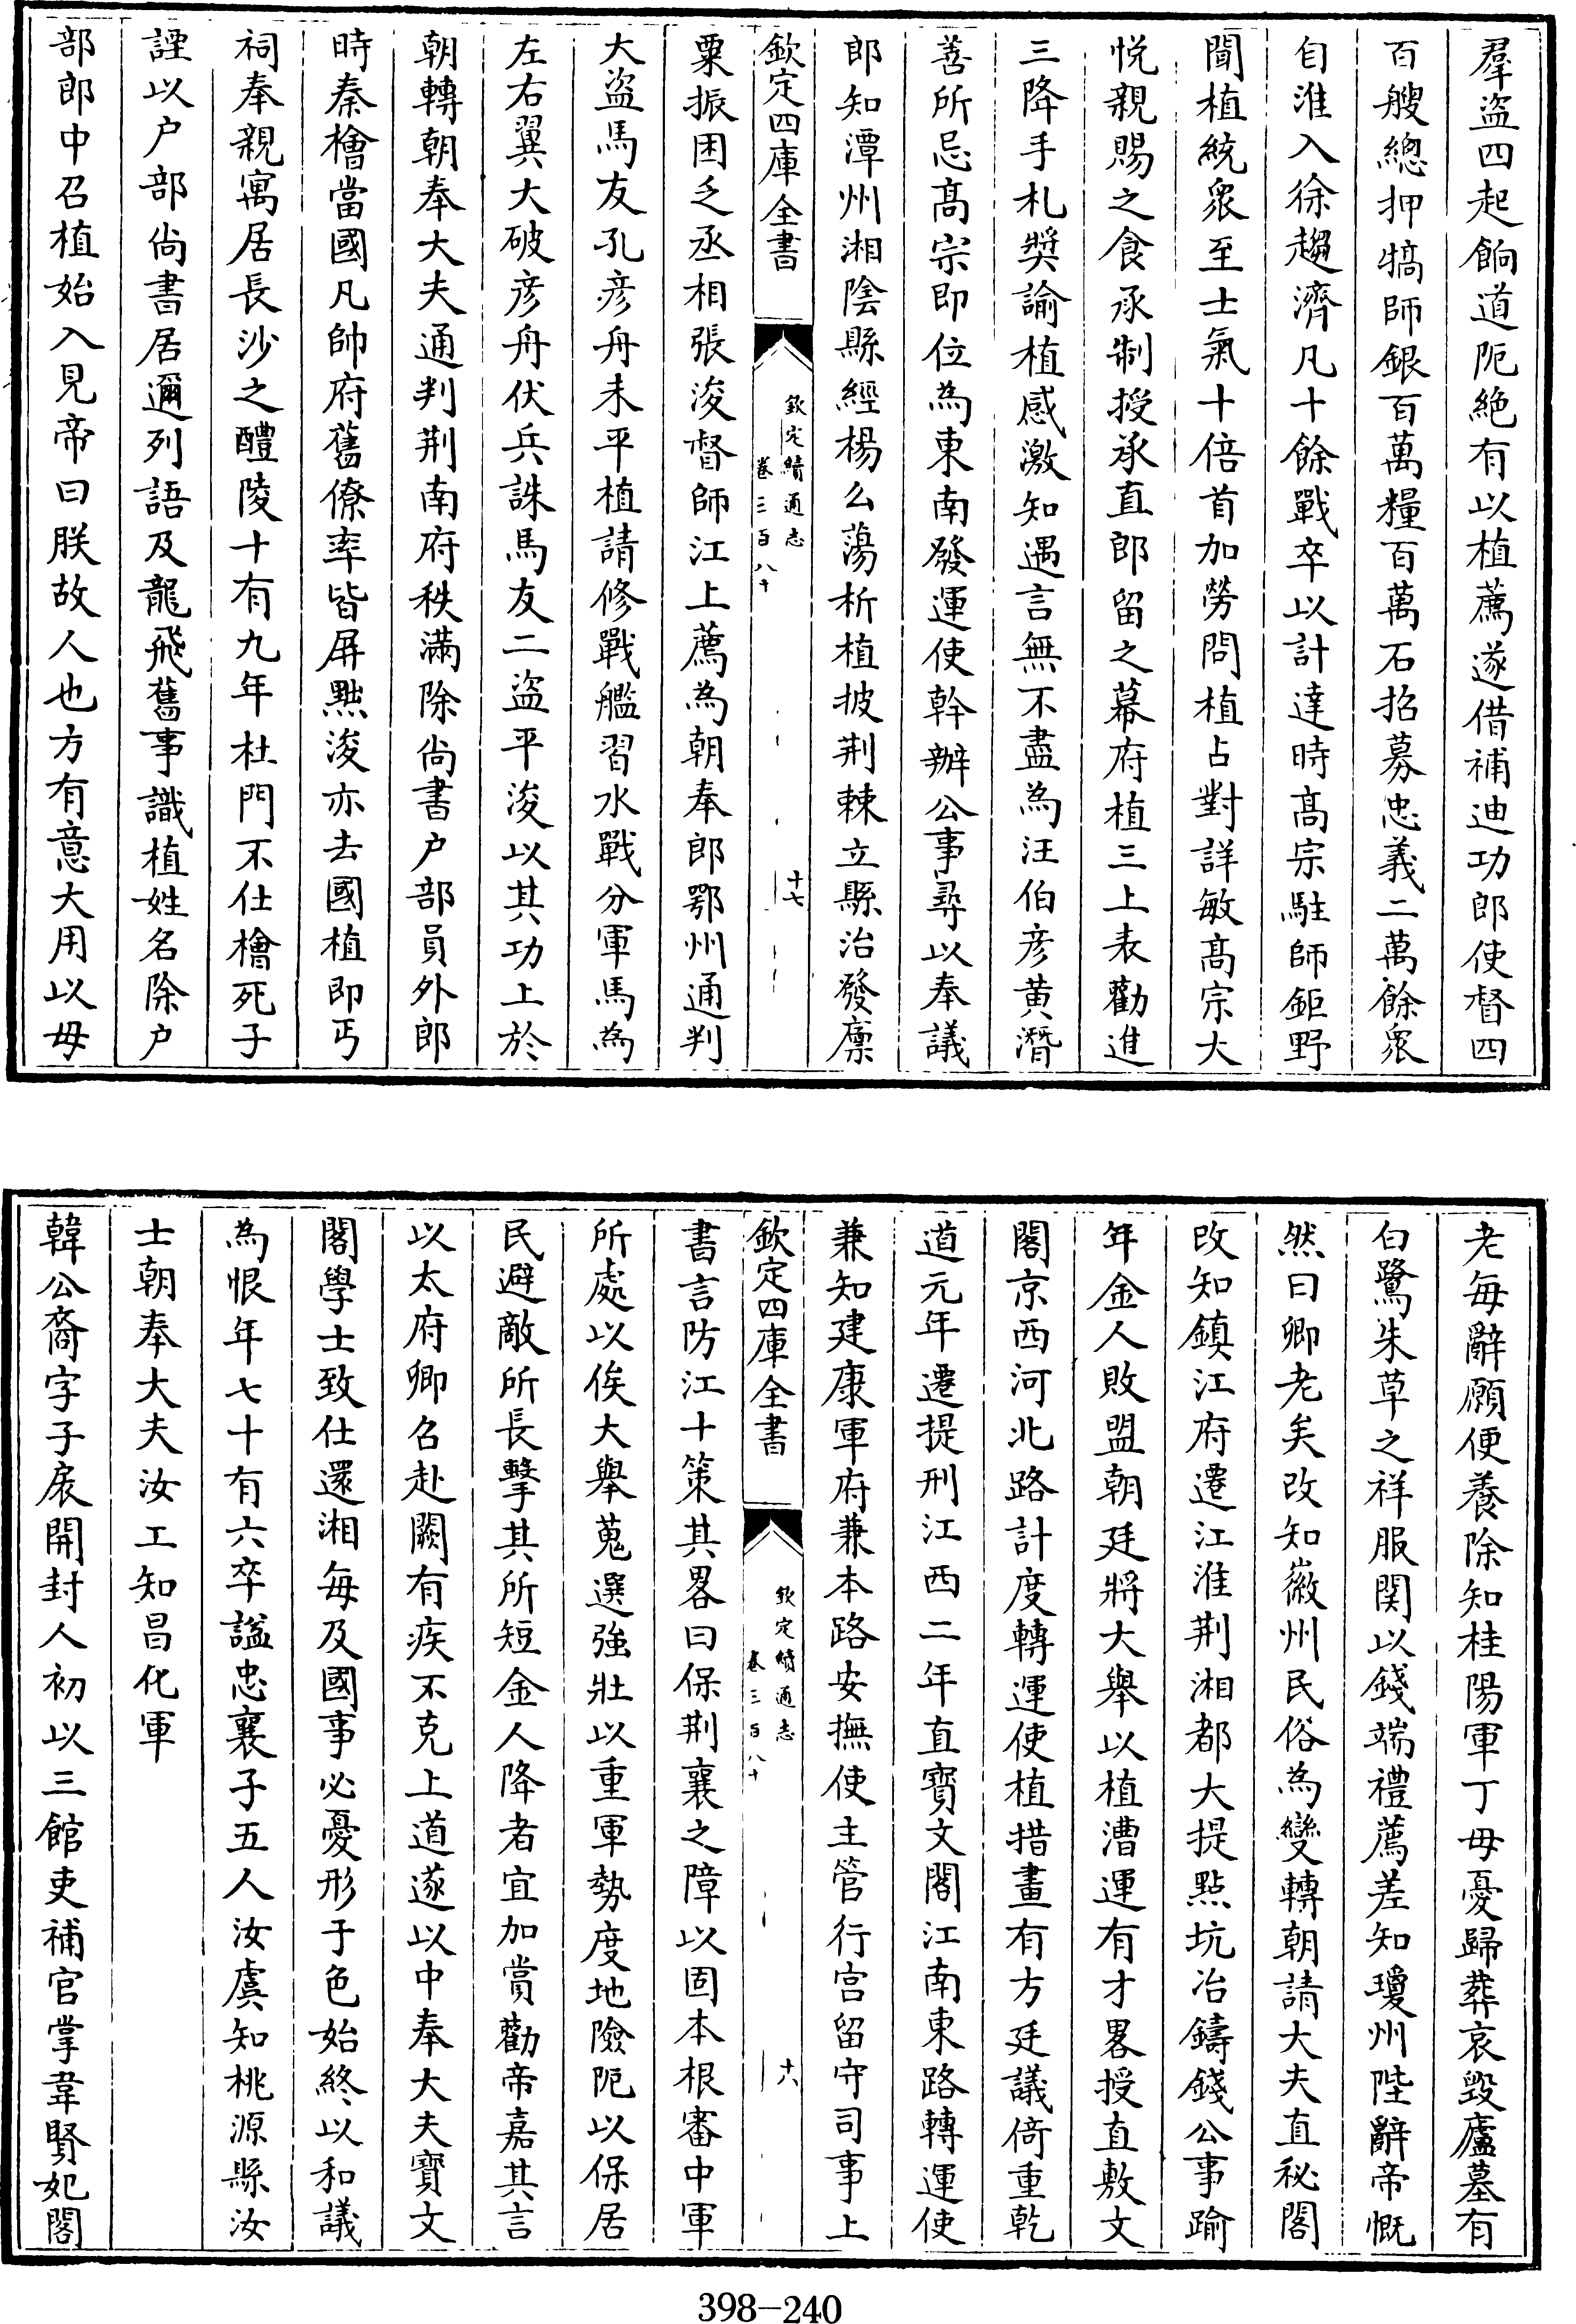 羣盜四起餉道阨絶有以植薦遂借補迪功郎使督四
百艘總押犒師銀百萬糧百萬石招募忠義二萬餘衆
自淮入徐趨濟凡十餘戰卒以計達時髙宗駐師鉅野
聞植統衆至士氣十倍首加勞問植占對詳敏髙宗大
悅親賜之食承制授承直郎留之幕府植三上表勸進
三降手札奬諭植感激知遇言無不盡為汪伯彦黄潛
善所忌髙宗即位為東南發運使幹辦公事尋以奉議
郎知潭州湘陰縣經楊么蕩析植披荆棘立縣治發廩
欽定四庫全書
欽定續通志
卷三百八十
十七
粟振困乏丞相張浚督師江上薦為朝奉郎鄂州通判
大盜馬友孔彦舟未平植請修戰艦習水戰分軍馬為
左右翼大破彦舟伏兵誅馬友二盜平浚以其功上於
朝轉朝奉大夫通判荆南府秩滿除尚書户部員外郎
時秦檜當國凡帥府舊僚率皆屏黜浚亦去國植即丐
祠奉親寓居長沙之醴陵十有九年杜門不仕檜死子
諲以户部尚書居邇列語及龍飛舊事識植姓名除户
部郎中召植始入見帝曰朕故人也方有意大用以母
老每辭願便養除知桂陽軍丁母憂歸葬哀毁廬墓有
白鷺朱草之祥服闋以錢端禮薦差知瓊州陛辭帝慨
然曰卿老矣改知徽州民俗為變轉朝請大夫直秘閣
改知鎮江府遷江淮荆湘都大提點坑冶鑄錢公事踰
年金人敗盟朝廷將大舉以植漕運有才畧授直敷文
閣京西河北路計度轉運使植措畫有方廷議倚重乾
道元年遷提刑江西二年直寳文閣江南東路轉運使
兼知建康軍府兼本路安撫使主管行宫留守司事上
欽定四庫全書
欽定續通志
卷三百八十
十八
書言防江十策其畧曰保荆襄之障以固本根審中軍
所處以俟大舉蒐選強壯以重軍勢度地險阨以保居
民避敵所長擊其所短金人降者宜加賞勸帝嘉其言
以太府卿召赴闕有疾不克上道遂以中奉大夫寳文
閣學士致仕還湘每及國事必憂形于色始終以和議
為恨年七十有六卒諡忠襄子五人汝虞知桃源縣汝
士朝奉大夫汝工知昌化軍
韓公裔字子扆開封人初以三館吏補官掌韋賢妃閣
398-240